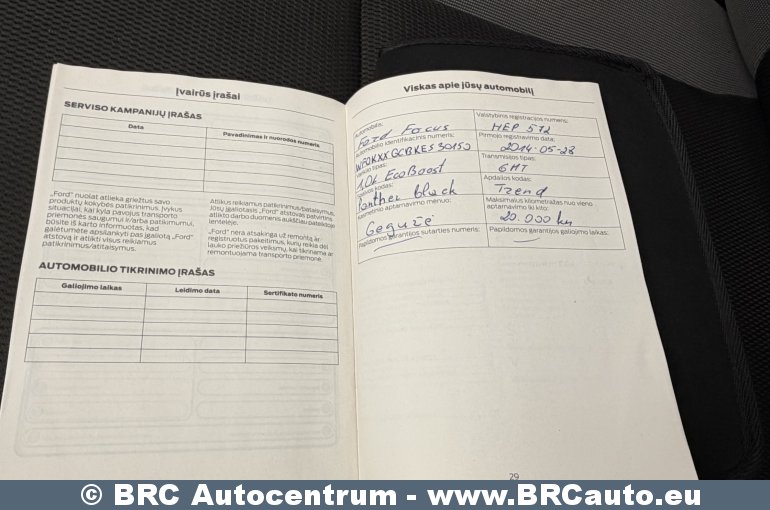 Įvairūs įrašai
SERVISO KAMPANIJŲ ĮRAŠAS
Data Pavadinimas ir nuorodos numeris
„Ford“ nuolat atlieka griežtus savo
produktų kokybės patikrinimus. Įvykus
situacijai, kai kyla pavojus transporto
priemonės saugumui ir/arba patikimumui,
būsite iš karto informuotas, kad
galėtumėte apsilankyti pas įgaliotą „Ford“
atstovą ir atlikti visus reikiamus
patikrinimus/atitaisymus.
Atlikus reikiamus patikrinimus/pataisymus,
Jūsų įgaliotasis „Ford“ atstovas patvirtins
atlikto darbo duomenis aukščiau pateiktoje
lentelėje.
„Ford“ nėra atsakinga už remontą ar
registruotus pakeitimus, kurių reikia dėl
lauko priežiūros veiksmų, kai tikrinama ar
remontuojama transporto priemonė.
AUTOMOBILIO TIKRINIMO ĮRAŠAS
Galiojimo laikas Leidimo data Sertifikato numeris
Viskas apie jūsų automobilį
Automobilis:
Ford Focus
Automobilio identifikacinis numeris:
WF0KXXGCBKES30153
Variklio tipas:
1.0L EcoBoost
Spalvos kodas:
Panther black
Kasmetinio aptarnavimo mėnuo:
Gegužė
Papildomos garantijos sutarties numeris:
Valstybinis registracijos numeris:
HEP 572
Pirmojo registravimo data:
2014-05-28
Transmisijos tipas:
6MT
Apdailos kodas:
Trend
Maksimalus kilometražas nuo vieno
aptarnavimo iki kito:
20.000 km
Papildomos garantijos galiojimo laikas:
29
© BRC Autocentrum - www.BRCauto.eu